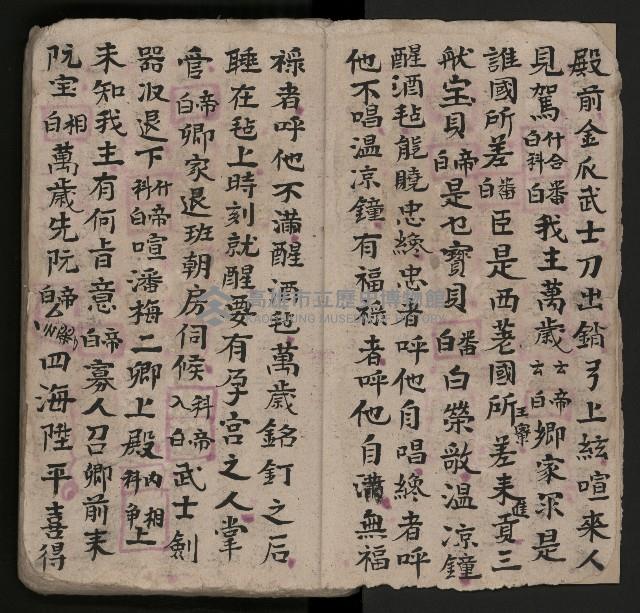 殿前金爪武士刀出銷弓上絃喧來人
見駕 什合科白 番白 我主萬歲 云云 帝白 卿家尓是
誰國所差 番白 臣是西茖國所 王寧 差来 進 貢三
献宝貝 帝白 是乜寶貝 番白 白榮敵温凉鐘
醒酒毡能曉忠纔忠者呼他自唱纔者呼
他不唱温凉鐘有福祿者呼他自滿無福
祿者呼他不滿醒酒毡萬歲銘釘之后
睡在毡上時刻就醒要有孕宮之人掌
管 帝白 卿家退班朝房伺候 科入 帝白 武士劍
器收退下 什科 帝白 喧潘梅二卿上殿 内科 相爭 上
未知我主有何旨意 帝白 寡人召卿前来
阮宝 相白 萬歲先阮 帝白 四海陞平喜得
高雄市立歷史博物館
KAOHSIUNG MUSEUM OF HISTORY